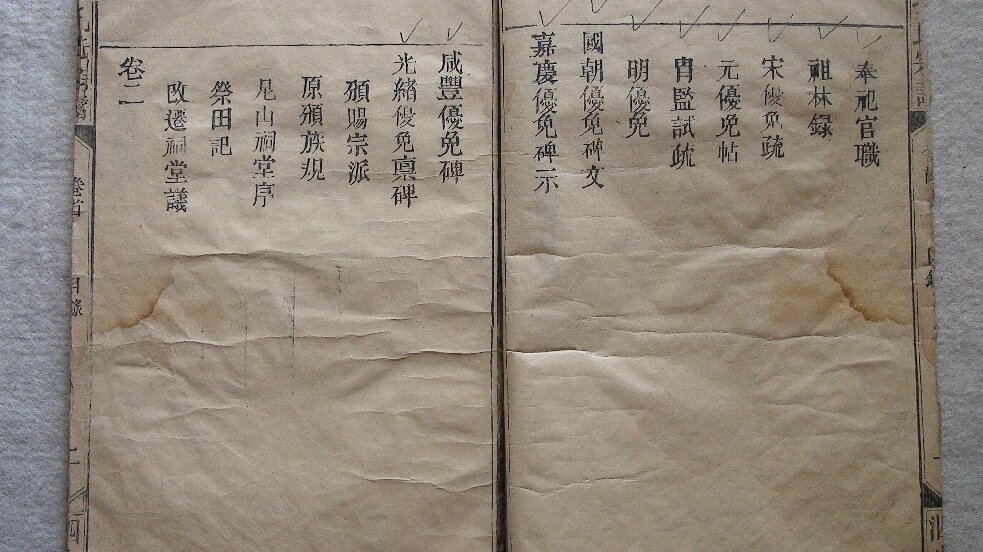 奉祀官職
祖林録
宋優免疏
元優免帖
冑監試疏
明優免
國朝優免碑文
嘉慶優免碑示
咸豐優免碑
光緒優免稟碑
頒賜宗派
原頒族規
尼山祠堂序
祭田記
改遷祠堂議
卷二
卷首
目錄
四